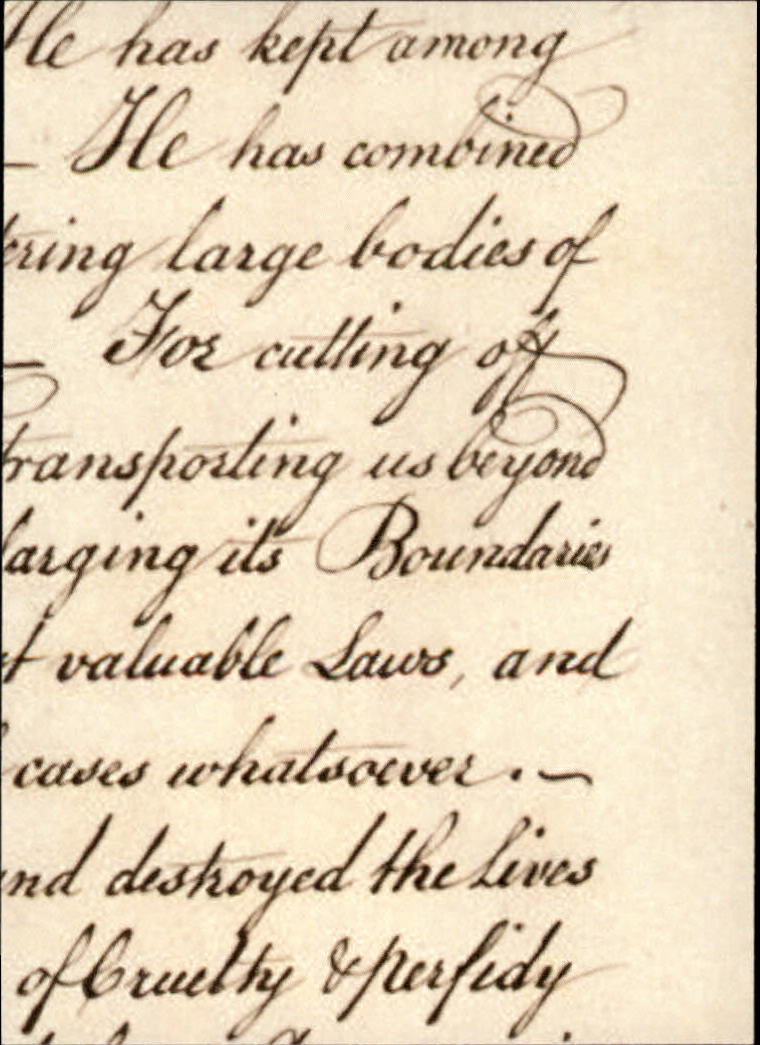 He has kept among
— He has combined
tering large bodies of
— For cutting off
transporting us beyond
larging its Boundaries
t valuable Laws, and
cases whatsoever. —
nd destroyed the Lives
of Cruelty & perfidy